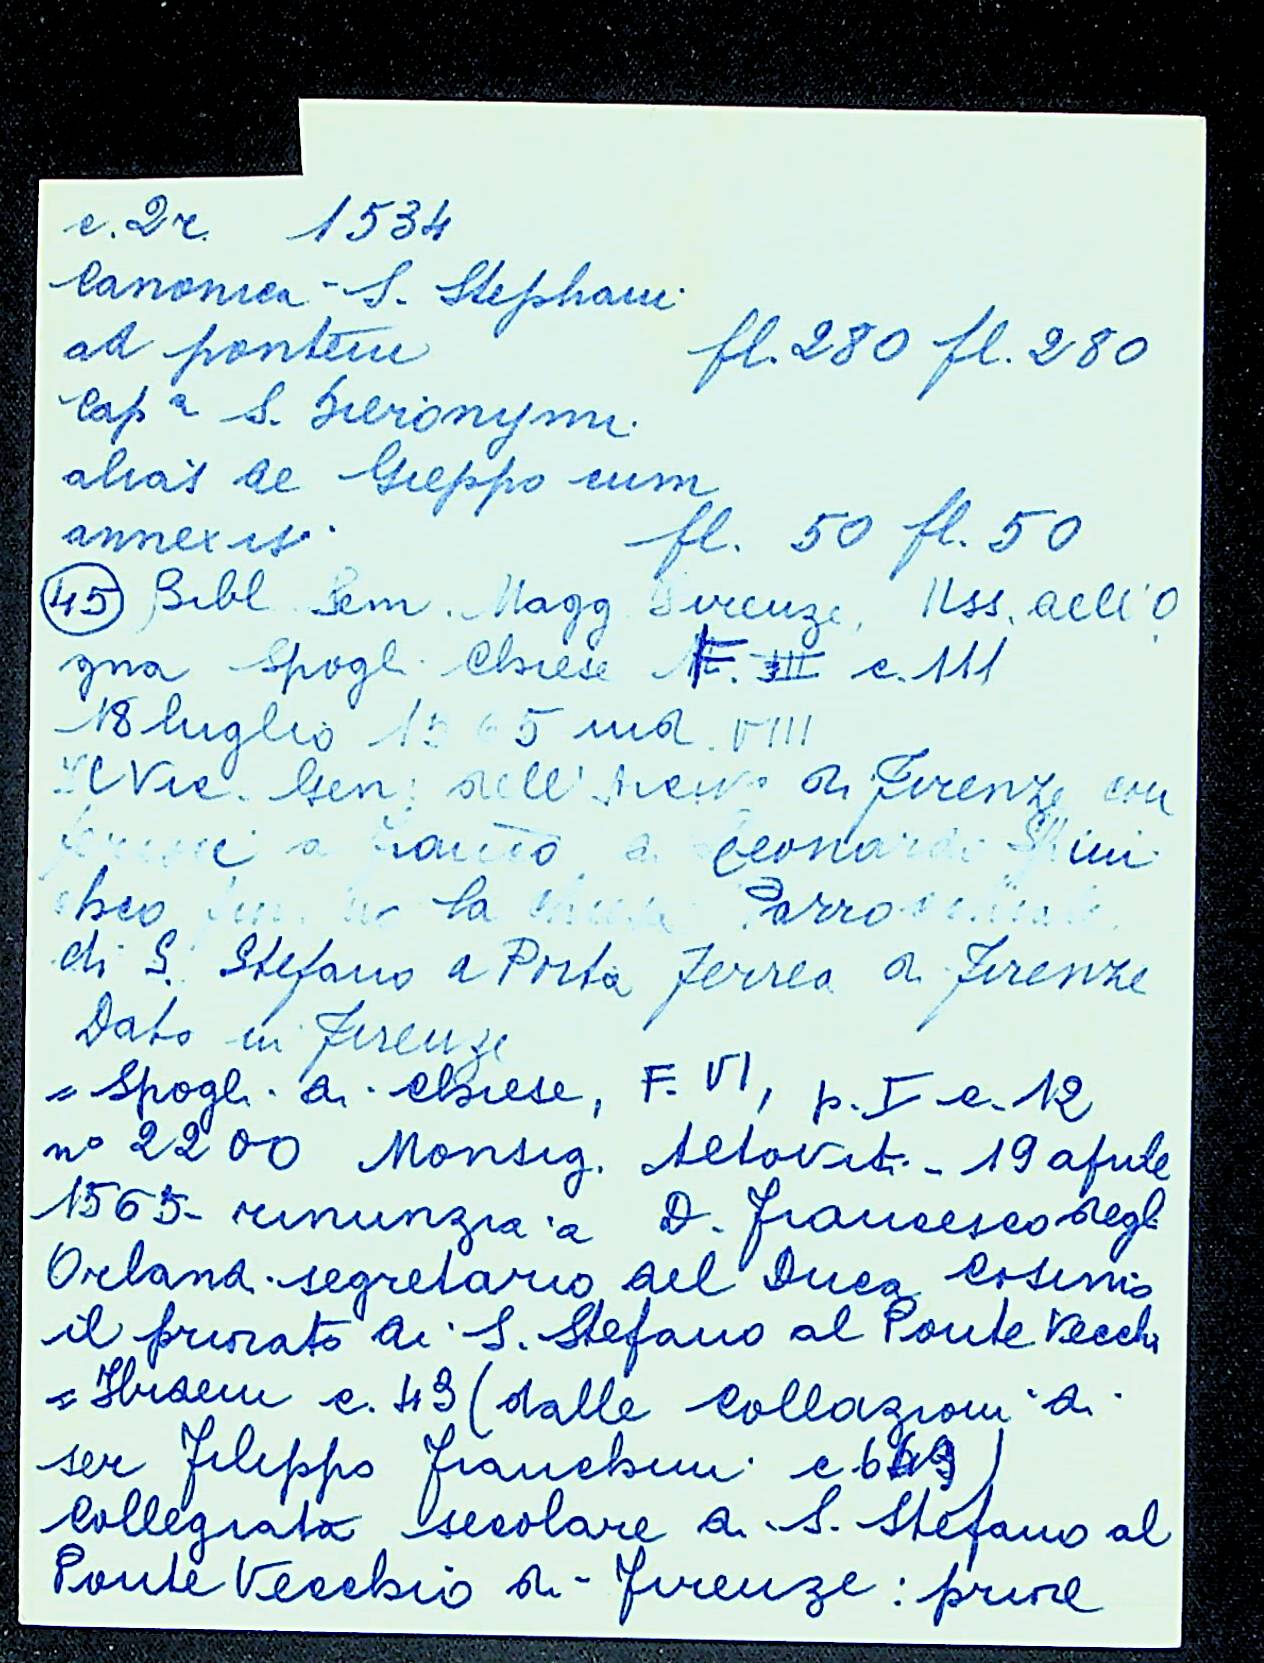 c. 2r. 1534
Canonica - S. Stephani
ad pontem fl. 280 fl. 280
Capª S. Hieronymi
alias de Gieppo cum
annexis fl. 50 fl. 50
(45) Bibl. Sem. Magg. Firenze, Mss. dell'O
gna Spogli Chiese F. III c. 111
18 luglio 1565 ind. VIII
Il Vic. Gen. dell' Arciv. di Firenze con
a Leonardi
la chiesa Parrocchiale
di S. Stefano a Porta Ferrea di Firenze
Dato in Firenze
= Spogli di Chiese, F. VI, p. I c. 12
n° 2200 Monsig. Altoviti - 19 aprile
1565 - rinunzia a D. Francesco degli
Orlandi segretario del Duca Cosimo
il priorato di S. Stefano al Ponte Vecchi
= Ibidem c. 49 (dalle collazioni di
ser Filippo Franchini c.
Collegiata secolare di S. Stefano al
Ponte Vecchio di Firenze : priore